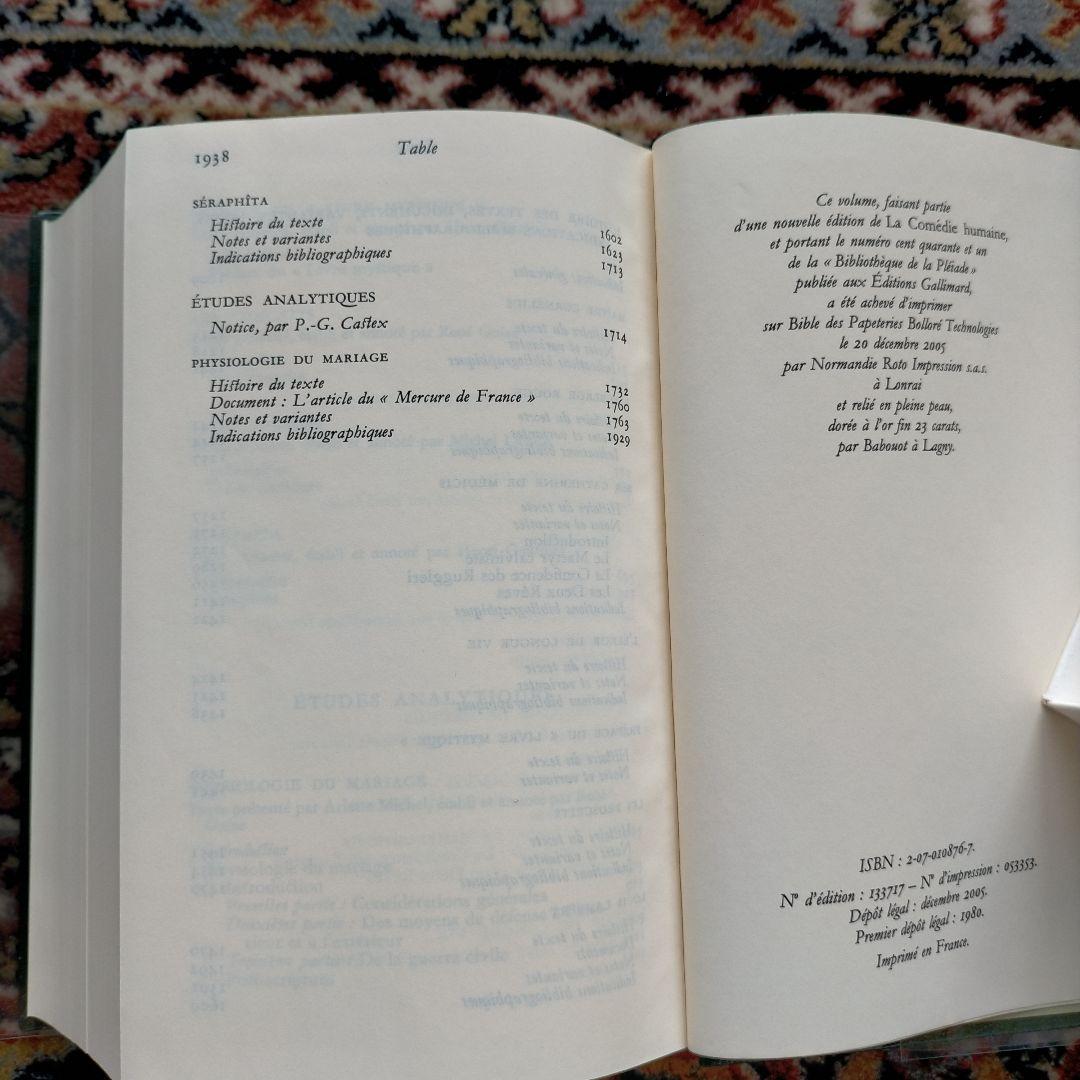 1938
Table
SÉRAPHÎTA
Histoire du texte 1602
Notes et variantes 1623
Indications bibliographiques 1713
ÉTUDES ANALYTIQUES
Notice, par P.-G. Castex 1714
PHYSIOLOGIE DU MARIAGE
Histoire du texte 1732
Document : L'article du « Mercure de France » 1760
Notes et variantes 1763
Indications bibliographiques 1929
Ce volume, faisant partie
d'une nouvelle édition de La Comédie humaine,
et portant le numéro cent quarante et un
de la « Bibliothèque de la Pléiade »
publiée aux Éditions Gallimard,
a été achevé d'imprimer
sur Bible des Papeteries Bolloré Technologies
le 20 décembre 2005
par Normandie Roto Impression s.a.s.
à Lonrai
et relié en pleine peau,
dorée à l'or fin 23 carats,
par Babouot à Lagny.
ISBN : 2-07-010876-7.
N° d'édition : 133717 – N° d'impression : 053353.
Dépôt légal : décembre 2005.
Premier dépôt légal : 1980.
Imprimé en France.